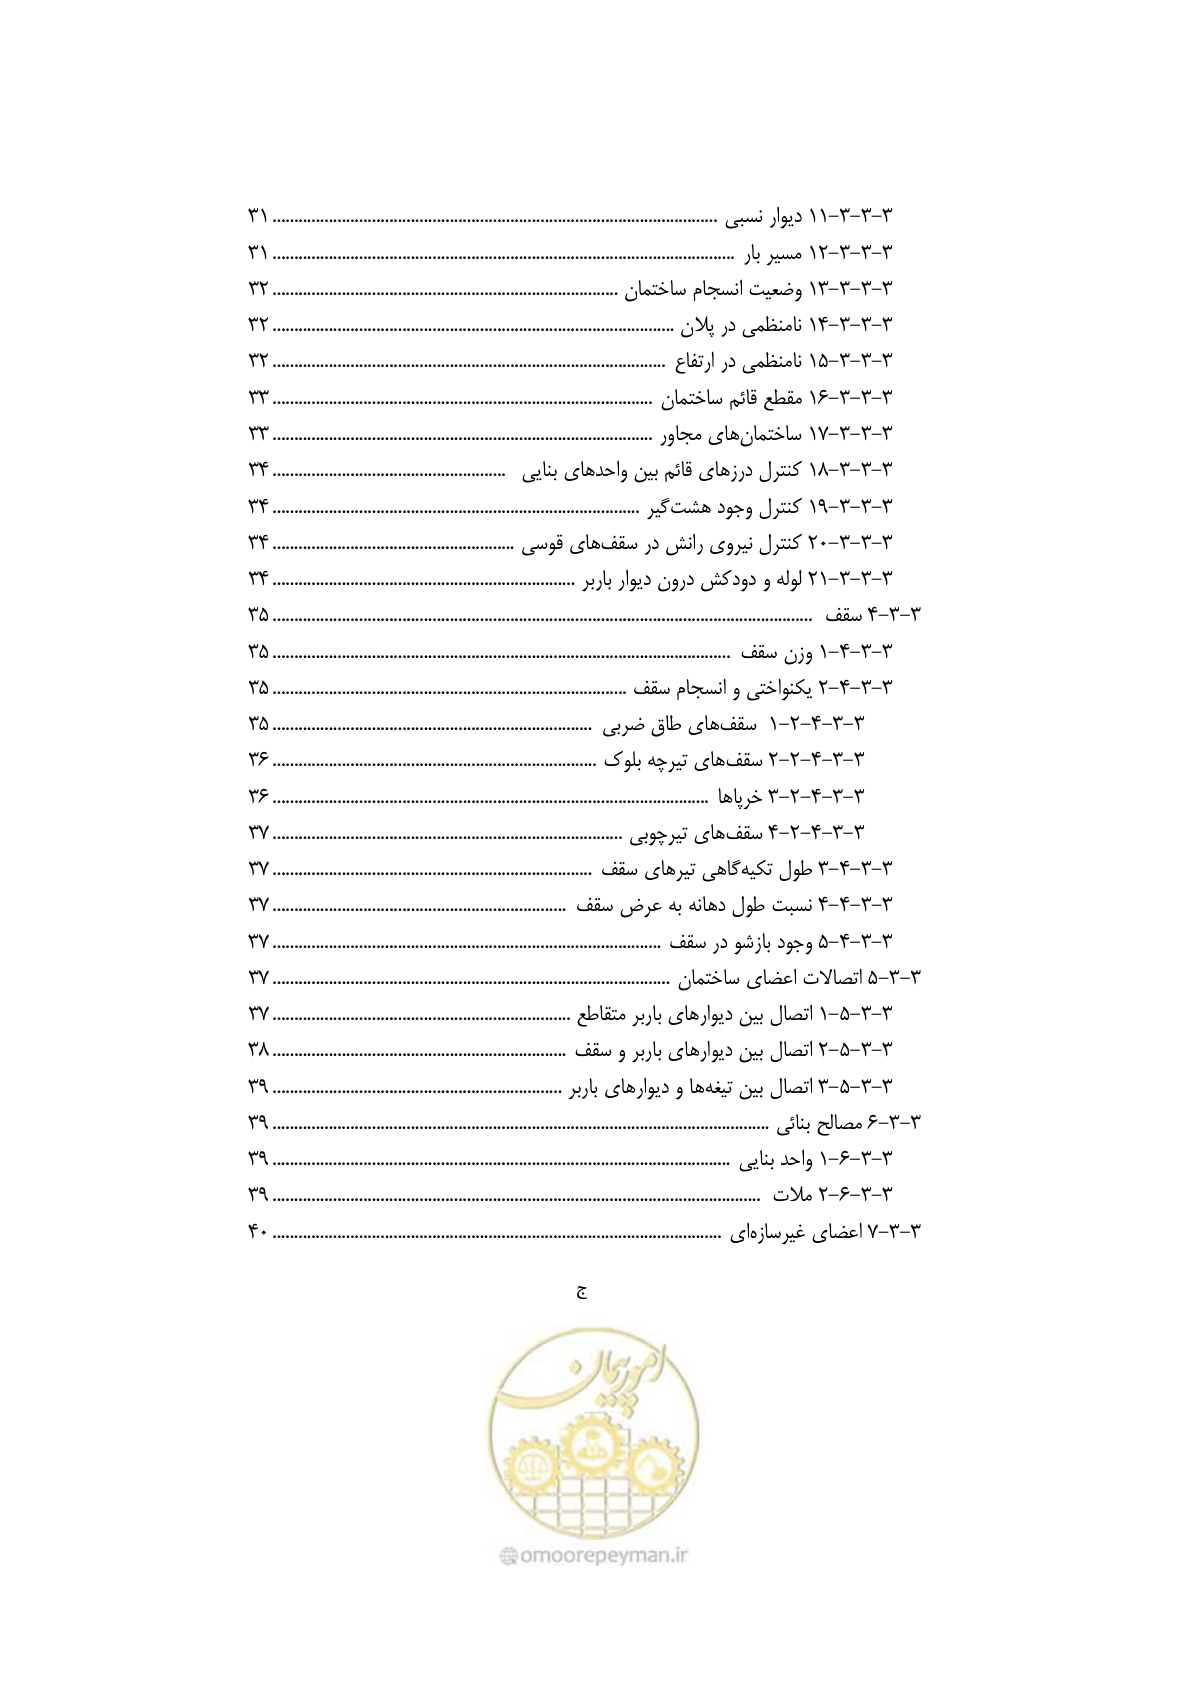 ۳-۳-۳-۱۱ دیوار نسبی ........ ۳۱
۳-۳-۳-۱۲ مسیر بار ........ ۳۱
۳-۳-۳-۱۳ وضعیت انسجام ساختمان ........ ۳۲
۳-۳-۳-۱۴ نامنظمی در پلان ........ ۳۲
۳-۳-۳-۱۵ نامنظمی در ارتفاع ........ ۳۲
۳-۳-۳-۱۶ مقطع قائم ساختمان ........ ۳۳
۳-۳-۳-۱۷ ساختمان‌های مجاور ........ ۳۳
۳-۳-۳-۱۸ کنترل درزهای قائم بین واحدهای بنایی ........ ۳۴
۳-۳-۳-۱۹ کنترل وجود هشت‌گیر ........ ۳۴
۳-۳-۳-۲۰ کنترل نیروی رانش در سقف‌های قوسی ........ ۳۴
۳-۳-۳-۲۱ لوله و دودکش درون دیوار باربر ........ ۳۴
۳-۳-۴ سقف ........ ۳۵
۳-۳-۴-۱ وزن سقف ........ ۳۵
۳-۳-۴-۲ یکنواختی و انسجام سقف ........ ۳۵
۳-۳-۴-۲-۱ سقف‌های طاق ضربی ........ ۳۵
۳-۳-۴-۲-۲ سقف‌های تیرچه بلوک ........ ۳۶
۳-۳-۴-۲-۳ خرپاها ........ ۳۶
۳-۳-۴-۲-۴ سقف‌های تیرچوبی ........ ۳۷
۳-۳-۴-۳ طول تکیه‌گاهی تیرهای سقف ........ ۳۷
۳-۳-۴-۴ نسبت طول دهانه به عرض سقف ........ ۳۷
۳-۳-۴-۵ وجود بازشو در سقف ........ ۳۷
۳-۳-۵ اتصالات اعضای ساختمان ........ ۳۷
۳-۳-۵-۱ اتصال بین دیوارهای باربر متقاطع ........ ۳۷
۳-۳-۵-۲ اتصال بین دیوارهای باربر و سقف ........ ۳۸
۳-۳-۵-۳ اتصال بین تیغه‌ها و دیوارهای باربر ........ ۳۹
۳-۳-۶ مصالح بنائی ........ ۳۹
۳-۳-۶-۱ واحد بنایی ........ ۳۹
۳-۳-۶-۲ ملات ........ ۳۹
۳-۳-۷ اعضای غیرسازه‌ای ........ ۴۰
ج
امور پیمان
omoorepeyman.ir